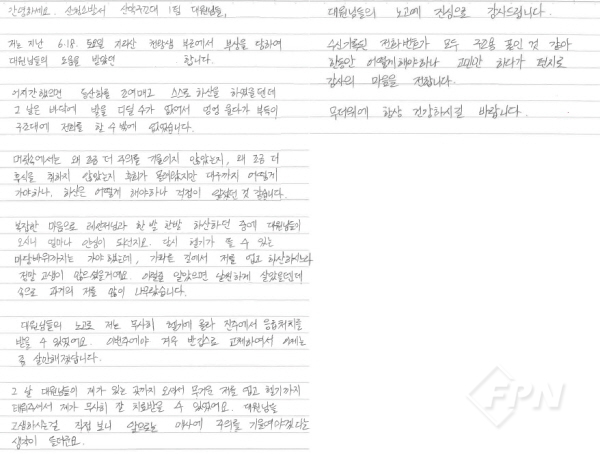 안녕하세요. 산청소방서 산악구조대 1팀 대원님들,
저는 지난 6.18. 토요일 지리산 천왕봉 부근에서 부상을 당하여
대원님들의 도움을 받았던 합니다.
어지간했으면 등산화를 조여매고 스스로 하산을 하였을텐데
그 날은 바닥에 발을 디딜 수가 없어서 엉엉 울다가 부득이
구조대에 전화를 할 수 밖에 없었습니다.
머릿속에서는 왜 조금 더 주의를 기울이지 않았는지, 왜 조금 더
휴식을 취하지 않았는지 후회가 몰려왔지만 대구까지 어떻게
가야하나, 하산은 어떻게 해야하나 걱정이 앞섰던 것 같습니다.
복잡한 마음으로 한 발 한발 하산하던 중에 대원님들이
오시니 얼마나 안심이 되던지요. 당시 헬기가 뜰 수 있는
마당바위까지는 가야 했는데, 가파른 길에서 저를 업고 하산하시느라
정말 고생이 많으셨을거예요. 이럴줄 알았으면 날씬하게 살았을텐데
속으로 과거의 저를 많이 나무랐습니다.
대원님들의 노고로 저는 무사히 헬기에 올라 진주에서 응급처치를
받을 수 있었어요. 이번주에야 겨우 반깁스로 교체하여서 이제는
좀 살만해졌답니다.
그 날 대원님들이 제가 있는 곳까지 오셔서 무거운 저를 업고 헬기까지
태워주셔서 제가 무사히 잘 치료받을 수 있었어요. 대원님들
고생하시는걸 직접 보니 앞으로는 매사에 주의를 기울여야겠다는
생각이 들어요.
대원님들의 노고에 진심으로 감사드립니다.
수신기록된 전화번호가 모두 구조용 폰인 것 같아
한동안 어떻게해야하나 고민만 하다가 편지로
감사의 마음을 전합니다.
무더위에 항상 건강하시길 바랍니다.
FPN